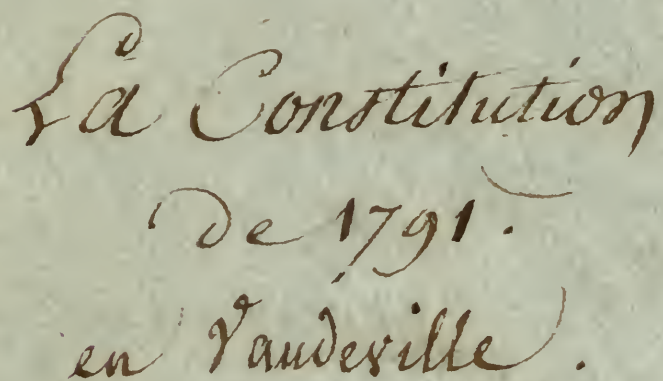 La Constitution
de 1791.
en Vaudeville.